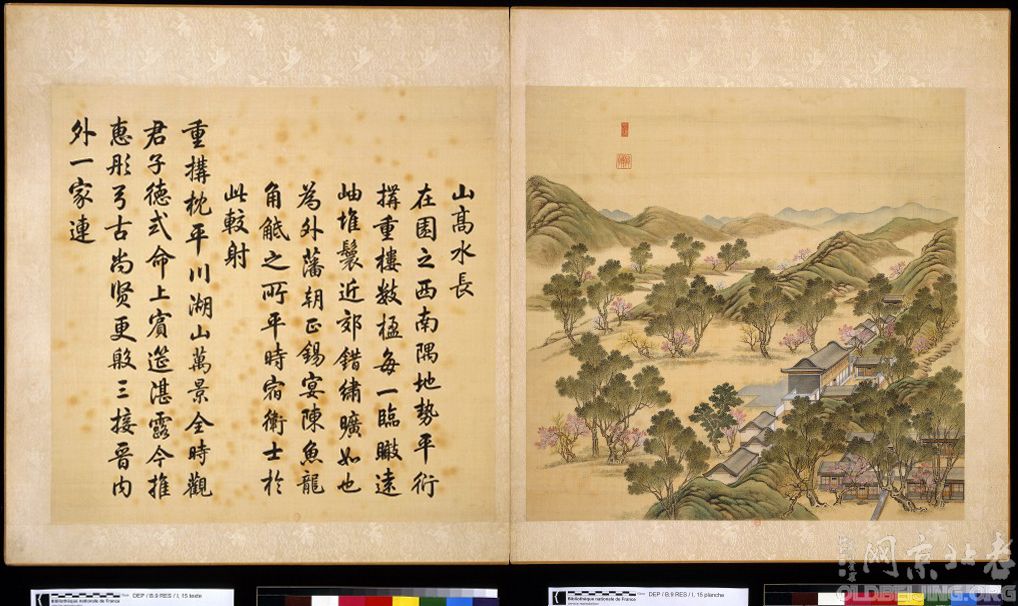 山高水長
在園之西南隅地勢平衍
搆重樓數楹每一臨瞰遠
岫堆鬟近郊錯繡曠如也
為外藩朝正錫宴陳魚龍
角觝之所平時宿衛士於
此較射
重搆枕平川湖山萬景全時觀
君子德式命上賓筵湛露今推
惠彤弓古尚贤更殷三接晉內
外一家連
Bibliothèque nationale de France
DEP / B.9 RES / I, 15 texte
Bibliothèque nationale de France
DEP / B.9 RES / I, 15 planche
老北京网
OLDBEIJING.ORG